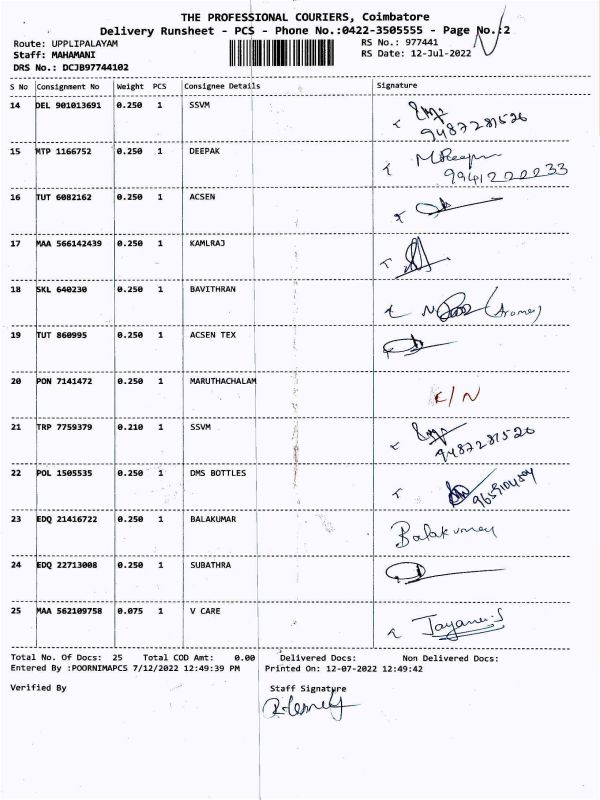 THE PROFESSIONAL COURIERS, Coimbatore
Delivery Runsheet - PCS - Phone No.:0422-3505555 - Page No.:2
Route: UPPLIPALAYAM RS No.: 977441
Staff: MAHAMANI RS Date: 12-Jul-2022
DRS No.: DCJB97744102
S No Consignment No Weight PCS Consignee Details Signature
14 DEL 901013691 0.250 1 SSVM
9487287526
15 MTP 1166752 0.250 1 DEEPAK
9941222233
16 TUT 6082162 0.250 1 ACSEN
17 MAA 566142439 0.250 1 KAMLRAJ
18 SKL 640230 0.250 1 BAVITHRAN
19 TUT 860995 0.250 1 ACSEN TEX
20 PON 7141472 0.250 1 MARUTHACHALAM
21 TRP 7759379 0.210 1 SSVM
9487287526
22 POL 1505535 0.250 1 DMS BOTTLES
23 EDQ 21416722 0.250 1 BALAKUMAR
24 EDQ 22713008 0.250 1 SUBATHRA
25 MAA 562109758 0.075 1 V CARE
Total No. Of Docs: 25 Total COD Amt: 0.00 Delivered Docs: Non Delivered Docs:
Entered By :POORNIMAPCS 7/12/2022 12:49:39 PM Printed On: 12-07-2022 12:49:42
Verified By Staff Signature